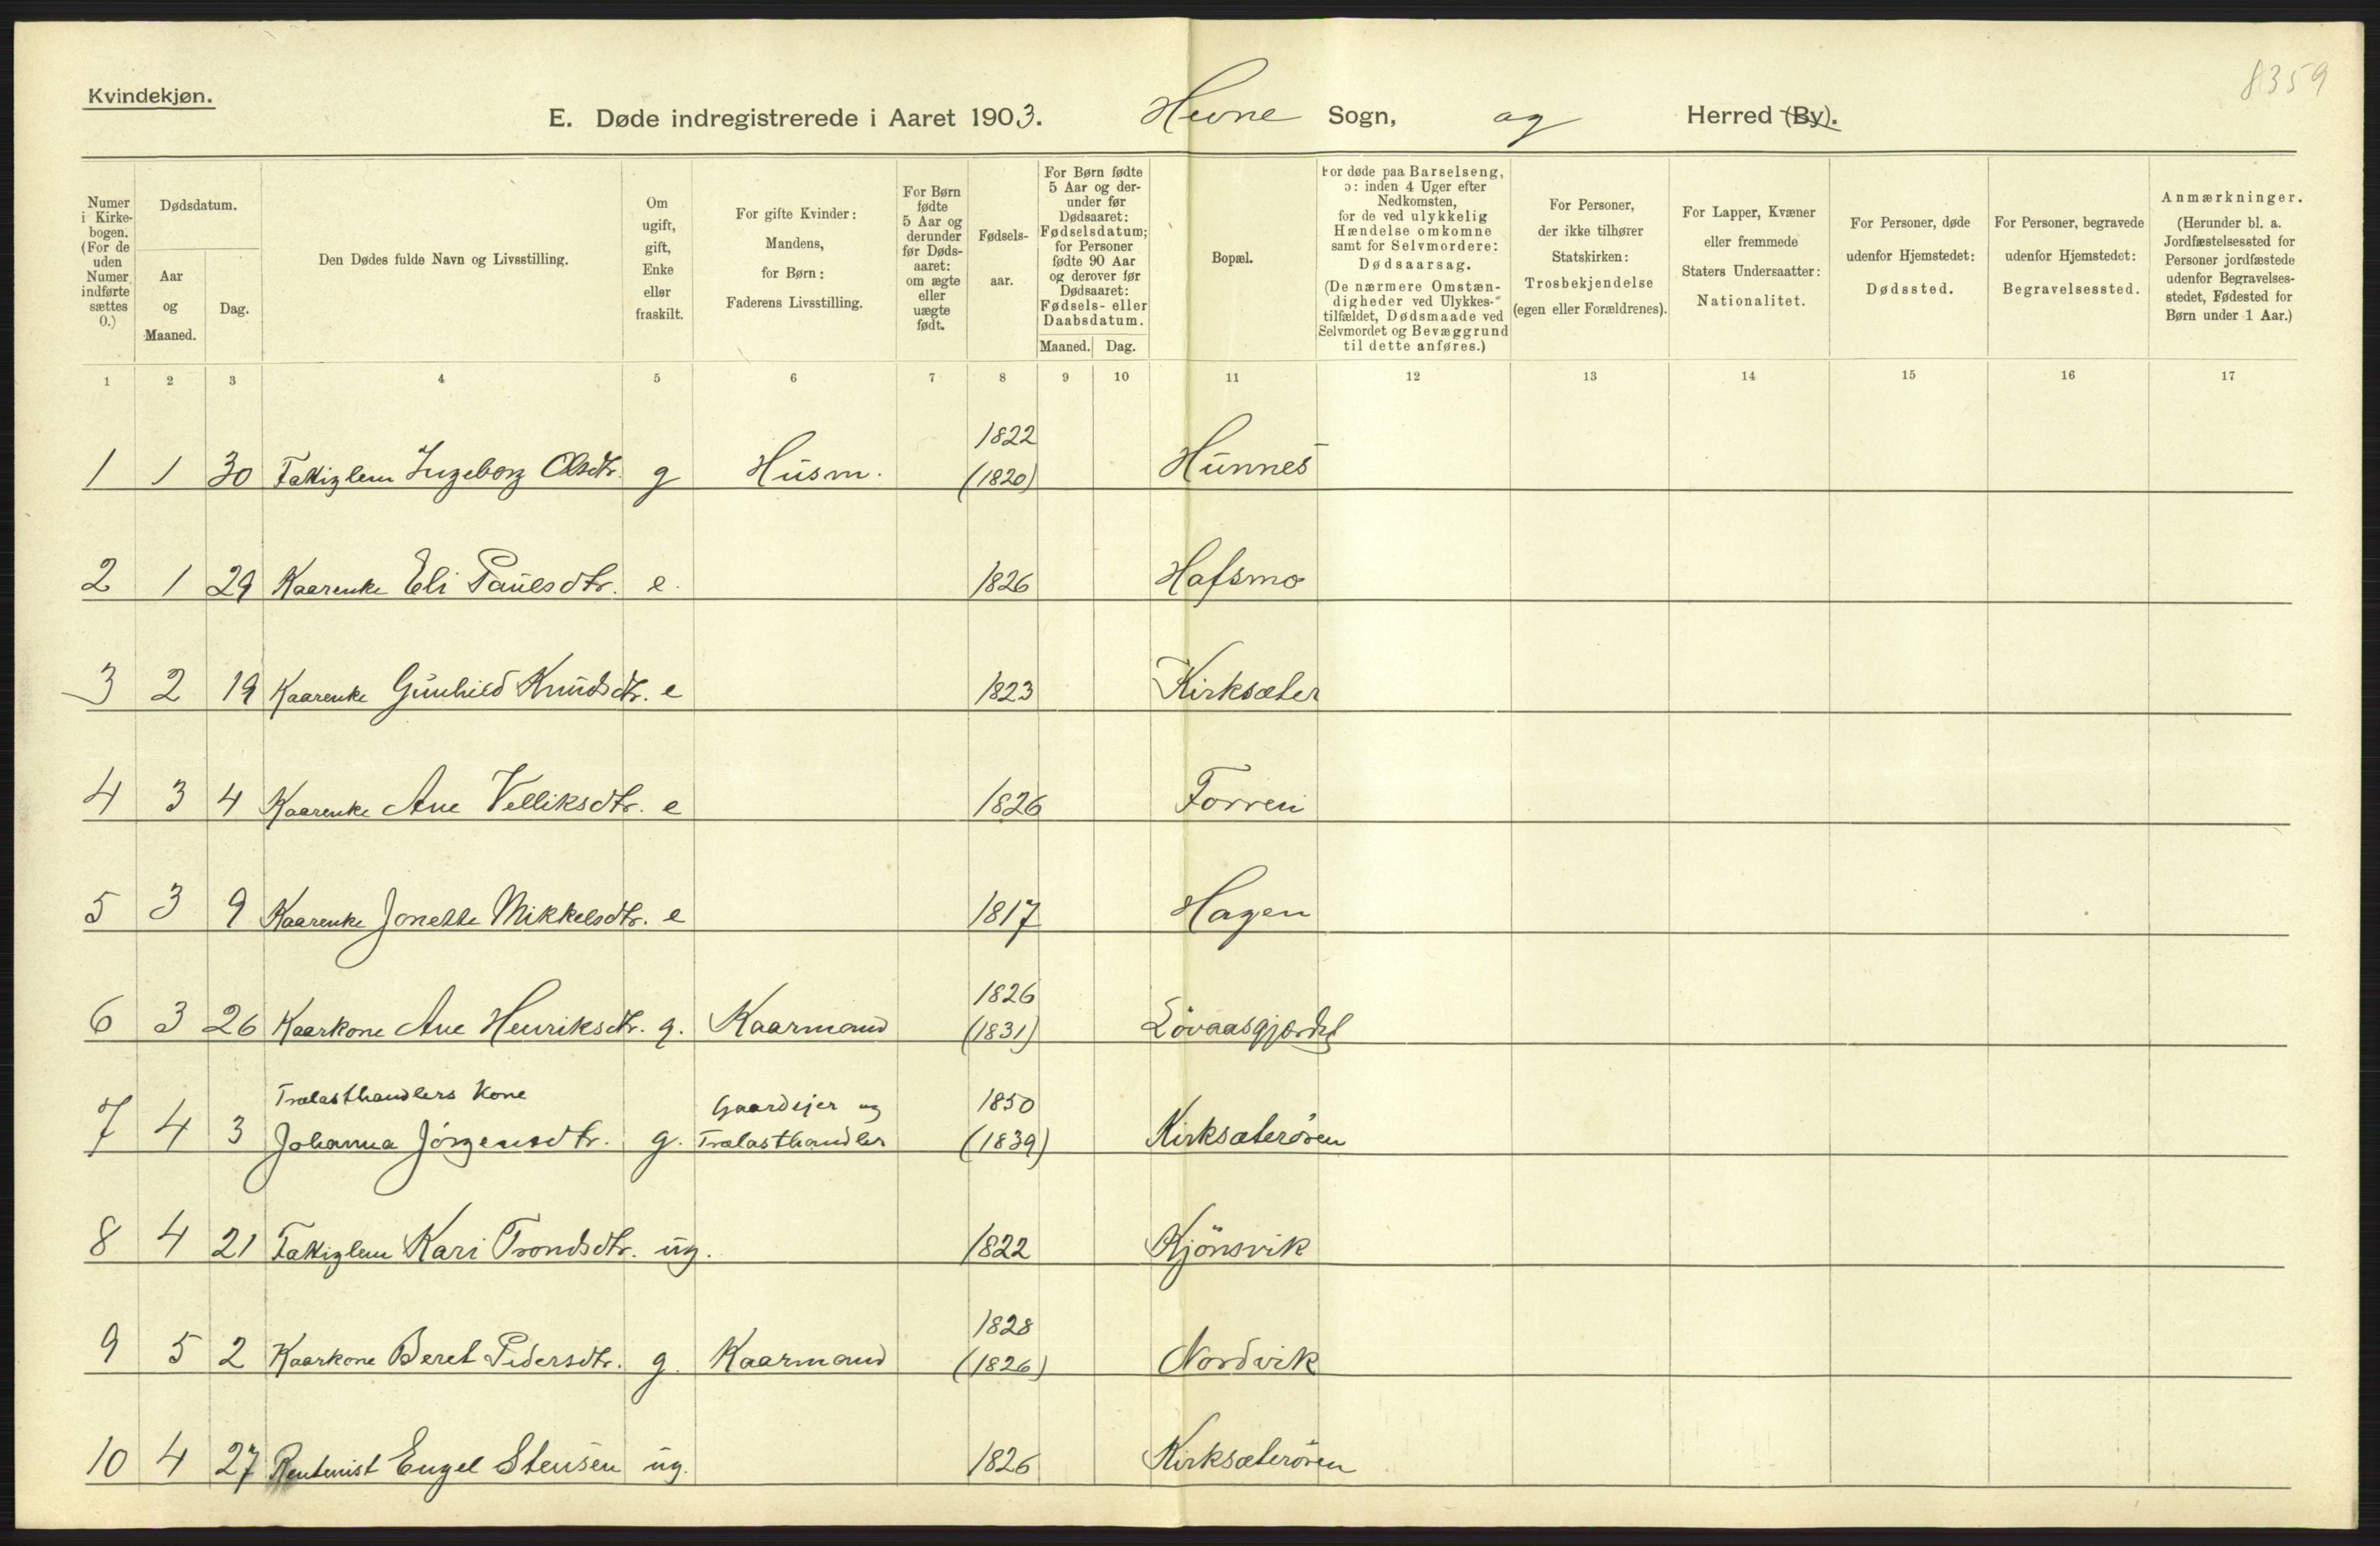 8359
Kvindekjøn.
E. Døde indregistrerede i Aaret 1903. Hevne Sogn, og Herred (By).
Numer i Kirkebogen. (For de uden Numer indførte sættes 0.)
Dødsdatum.
Aar og Maaned.
Dag.
Den Dødes fulde Navn og Livsstilling.
Om ugift, gift, Enke eller fraskilt.
For gifte Kvinder: Mandens, for Børn: Faderens Livsstilling.
For Børn fødte 5 Aar og derunder før Dødsaaret: om ægte eller uægte født.
Fødselsaar.
For Børn fødte 5 Aar og derunder før Dødsaaret: Fødselsdatum; for Personer fødte 90 Aar og derover før Dødsaaret: Fødsels- eller Daabsdatum.
Maaned. Dag.
Bopæl.
For døde paa Barselseng, ɔ: inden 4 Uger efter Nedkomsten, for de ved ulykkelig Hændelse omkomne samt for Selvmordere: Dødsaarsag. (De nærmere Omstændigheder ved Ulykkestilfældet, Dødsmaade ved Selvmordet og Bevæggrund til dette anføres.)
For Personer, der ikke tilhører Statskirken: Trosbekjendelse (egen eller Forældrenes).
For Lapper, Kvæner eller fremmede Staters Undersaatter: Nationalitet.
For Personer, døde udenfor Hjemstedet: Dødssted.
For Personer, begravede udenfor Hjemstedet: Begravelsessted.
Anmærkninger. (Herunder bl. a. Jordfæstelsessted for Personer jordfæstede udenfor Begravelsesstedet, Fødested for Børn under 1 Aar.)
1 2 3 4 5 6 7 8 9 10 11 12 13 14 15 16 17
1822
1 1 30 Fattiglem Ingeborg Olsdtr. g Husm. (1820) Hunnes
2 1 29 Kaarenke Eli Paulsdtr. e. 1826 Hafsmo
3 2 19 Kaarenke Gunhild Knudsdtr. e 1823 Kirksæter
4 3 4 Kaarenke Ane Velliksdtr. e 1826 Forren
5 3 9 Kaarenke Jonette Mikkelsdtr. e 1817 Hagen
1826
6 3 26 Kaarkone Ane Henriksdtr. g. Kaarmand (1831) Lövaasgjærdet
Trælasthandlers Kone Gaardejer og 1850
7 4 3 Johanna Jörgensdtr. g. Trælasthandler (1839) Kirksæterören
8 4 21 Fattiglem Kari Trondsdtr. ug. 1822 Kjönsvik
1828
9 5 2 Kaarkone Beret Pedersdtr. g. Kaarmand (1826) Nordvik
10 4 27 Rentenist Engel Stensen ug. 1826 Kirksæterören